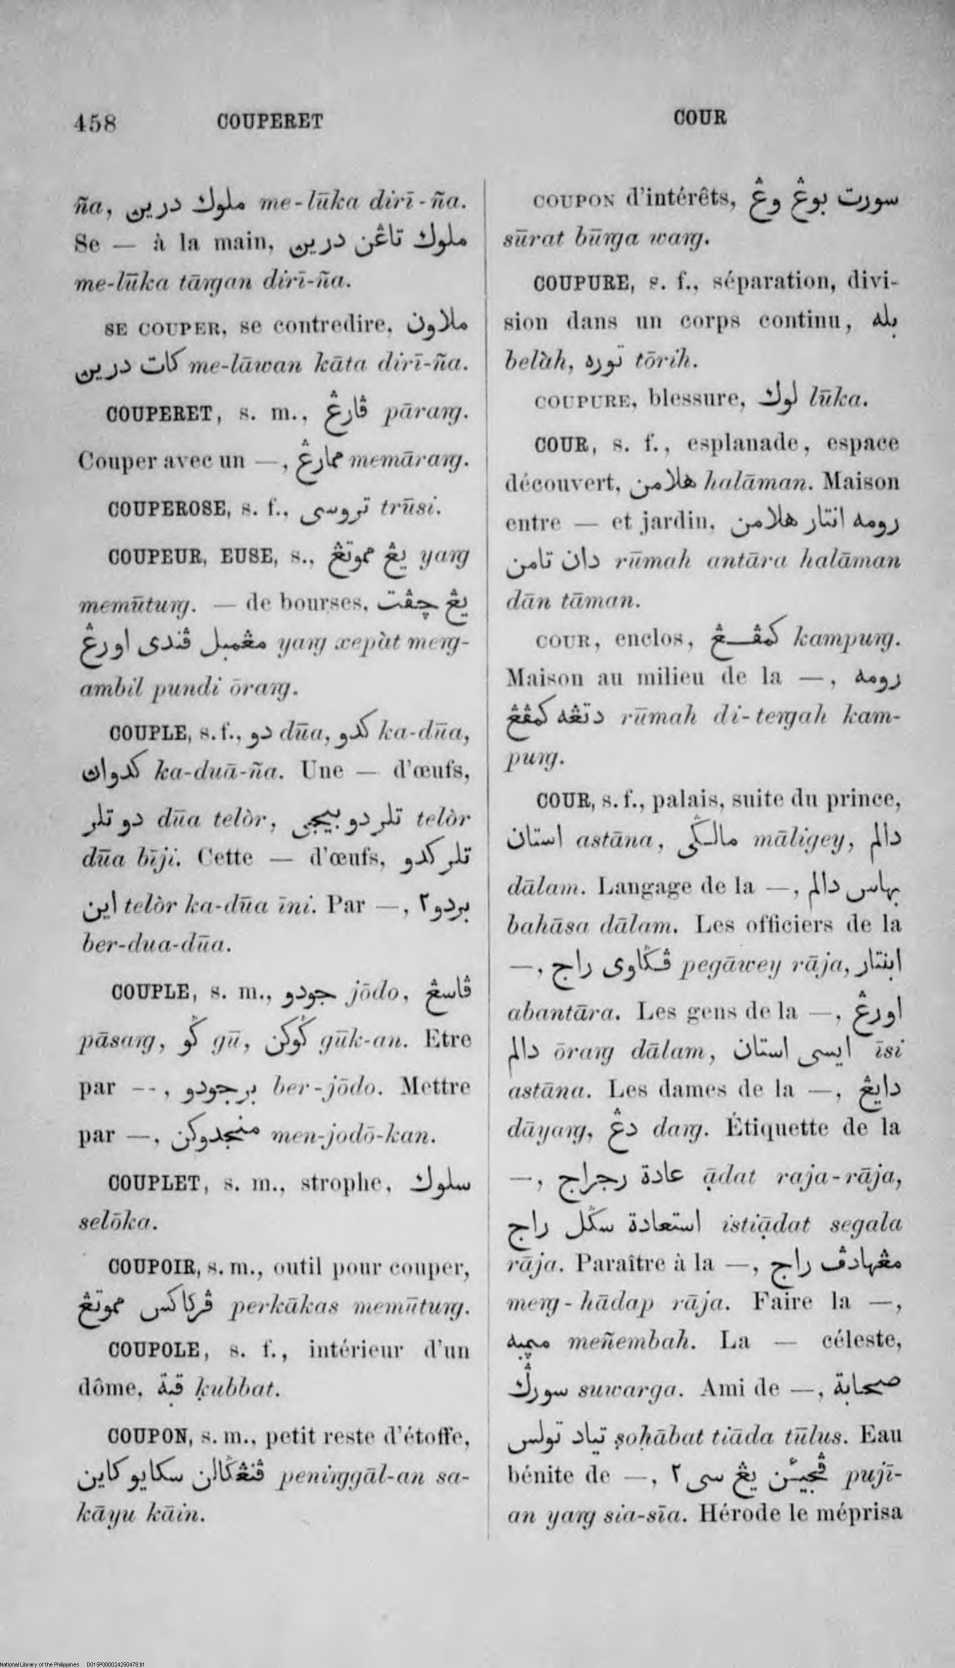 458 COUPERET COUR
ña, ملوك درين me-lūka dirī-ña.
Se — à la main, ملوك تاڠن درين
me-lūka tāṅgan dirī-ña.
SE COUPER, se contredire, ملاون
كات درين me-lāwan kāta dirī-ña.
COUPERET, s. m., ڤارڠ pāraṅg.
Couper avec un —, ممارڠ memāraṅg.
COUPEROSE, s. f., تروسى trūsi.
COUPEUR, EUSE, s., يڠ مموتڠ yaṅg
memūtuṅg. — de bourses, يڠ چڤت
مڠمبل ڤندى اورڠ yaṅg xepàt meṅg-
ambil pundi ōraṅg.
COUPLE, s. f., دو dūa, كدو ka-dūa,
كدوان ka-duā-ña. Une — d'œufs,
دو تلر dūa telòr, تلر دو بيجى telòr
dūa bīji. Cette — d'œufs, تلر كدو
اين telòr ka-dūa īni. Par —, بردو٢
ber-dua-dūa.
COUPLE, s. m., جودو jōdo, ڤاسڠ
pāsaṅg, ݢو gū, ݢوكن gūk-an. Etre
par —, برجودو ber-jōdo. Mettre
par —, منجدوكن men-jodō-kan.
COUPLET, s. m., strophe, سلوك
selōka.
COUPOIR, s. m., outil pour couper,
ڤركاكس مموتڠ perkākas memūtuṅg.
COUPOLE, s. f., intérieur d'un
dôme, قبة ḳubbat.
COUPON, s. m., petit reste d'étoffe,
ڤنڠݢالن سكايو كاين peniṅggāl-an sa-
kāyu kāin.
COUPON d'intérêts, سورت بوڠ وڠ
sūrat būṅga waṅg.
COUPURE, s. f., séparation, divi-
sion dans un corps continu, بله
belàh, توره tōrih.
COUPURE, blessure, لوك lūka.
COUR, s. f., esplanade, espace
découvert, هلامن halāman. Maison
entre — et jardin, رومه انتار هلامن
دان تامن rūmah antāra halāman
dān tāman.
COUR, enclos, كمڤڠ kampuṅg.
Maison au milieu de la —, رومه
دتڠه كمڤڠ rūmah di-teṅgah kam-
puṅg.
COUR, s. f., palais, suite du prince,
استان astāna, مالݢى māligey, دالم
dālam. Langage de la —, بهاس دالم
bahāsa dālam. Les officiers de la
—, ڤݢاوى راج pegāwey rāja, ابنتار
abantāra. Les gens de la —, اورڠ
دالم ōraṅg dālam, ايسى استان īsi
astāna. Les dames de la —, دايڠ
dāyaṅg, دڠ daṅg. Étiquette de la
—, عادة رجراج ạ̄dat raja-rāja,
استعادة سݢل راج istiạ̄dat segala
rāja. Paraître à la —, مڠهادڤ راج
meṅg-hādap rāja. Faire la —,
مڽمبه meñembah. La — céleste,
سورݢ suwarga. Ami de —, صحابة
تياد تولس ṣoḥābat tiāda tūlus. Eau
bénite de —, ڤجيئن يڠ سى٢ pujī-
an yaṅg sia-sīa. Hérode le méprisa
National Library of the Philippines